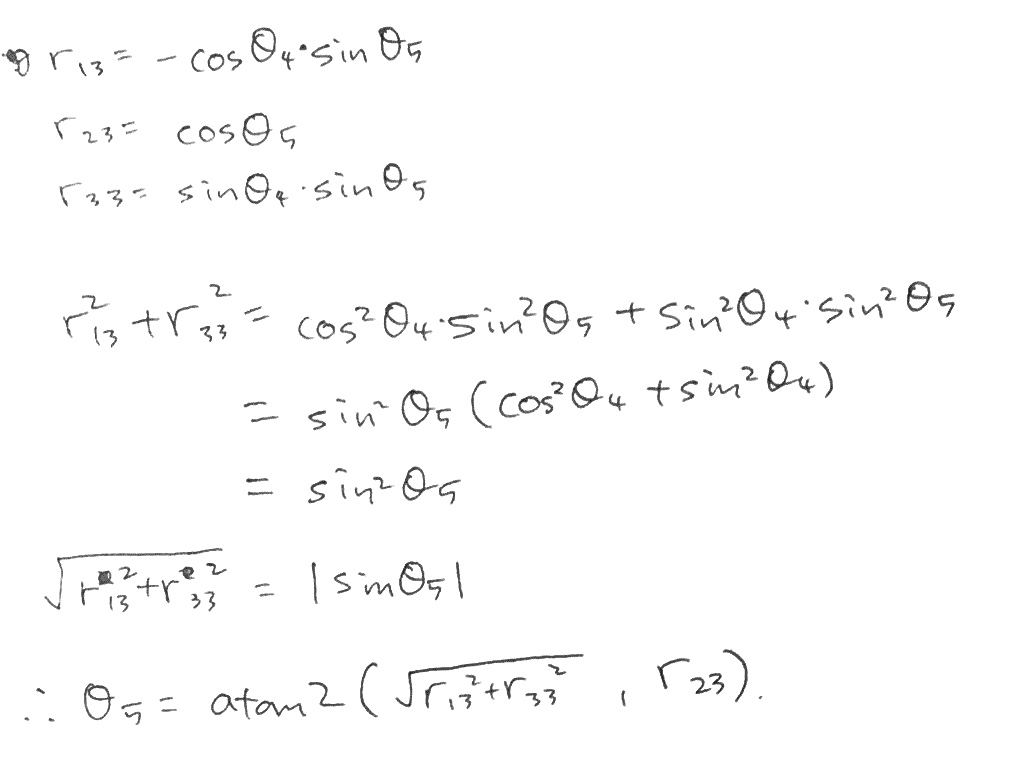 r₁₃ = - cos θ₄ · sin θ₅
r₂₃ = cos θ₅
r₃₃ = sin θ₄ · sin θ₅
r₁₃² + r₃₃² = cos² θ₄ · sin² θ₅ + sin² θ₄ · sin² θ₅
= sin² θ₅ (cos² θ₄ + sin² θ₄)
= sin² θ₅
√(r₁₃² + r₃₃²) = |sin θ₅|
∴ θ₅ = atan2 (√(r₁₃² + r₃₃²) , r₂₃).